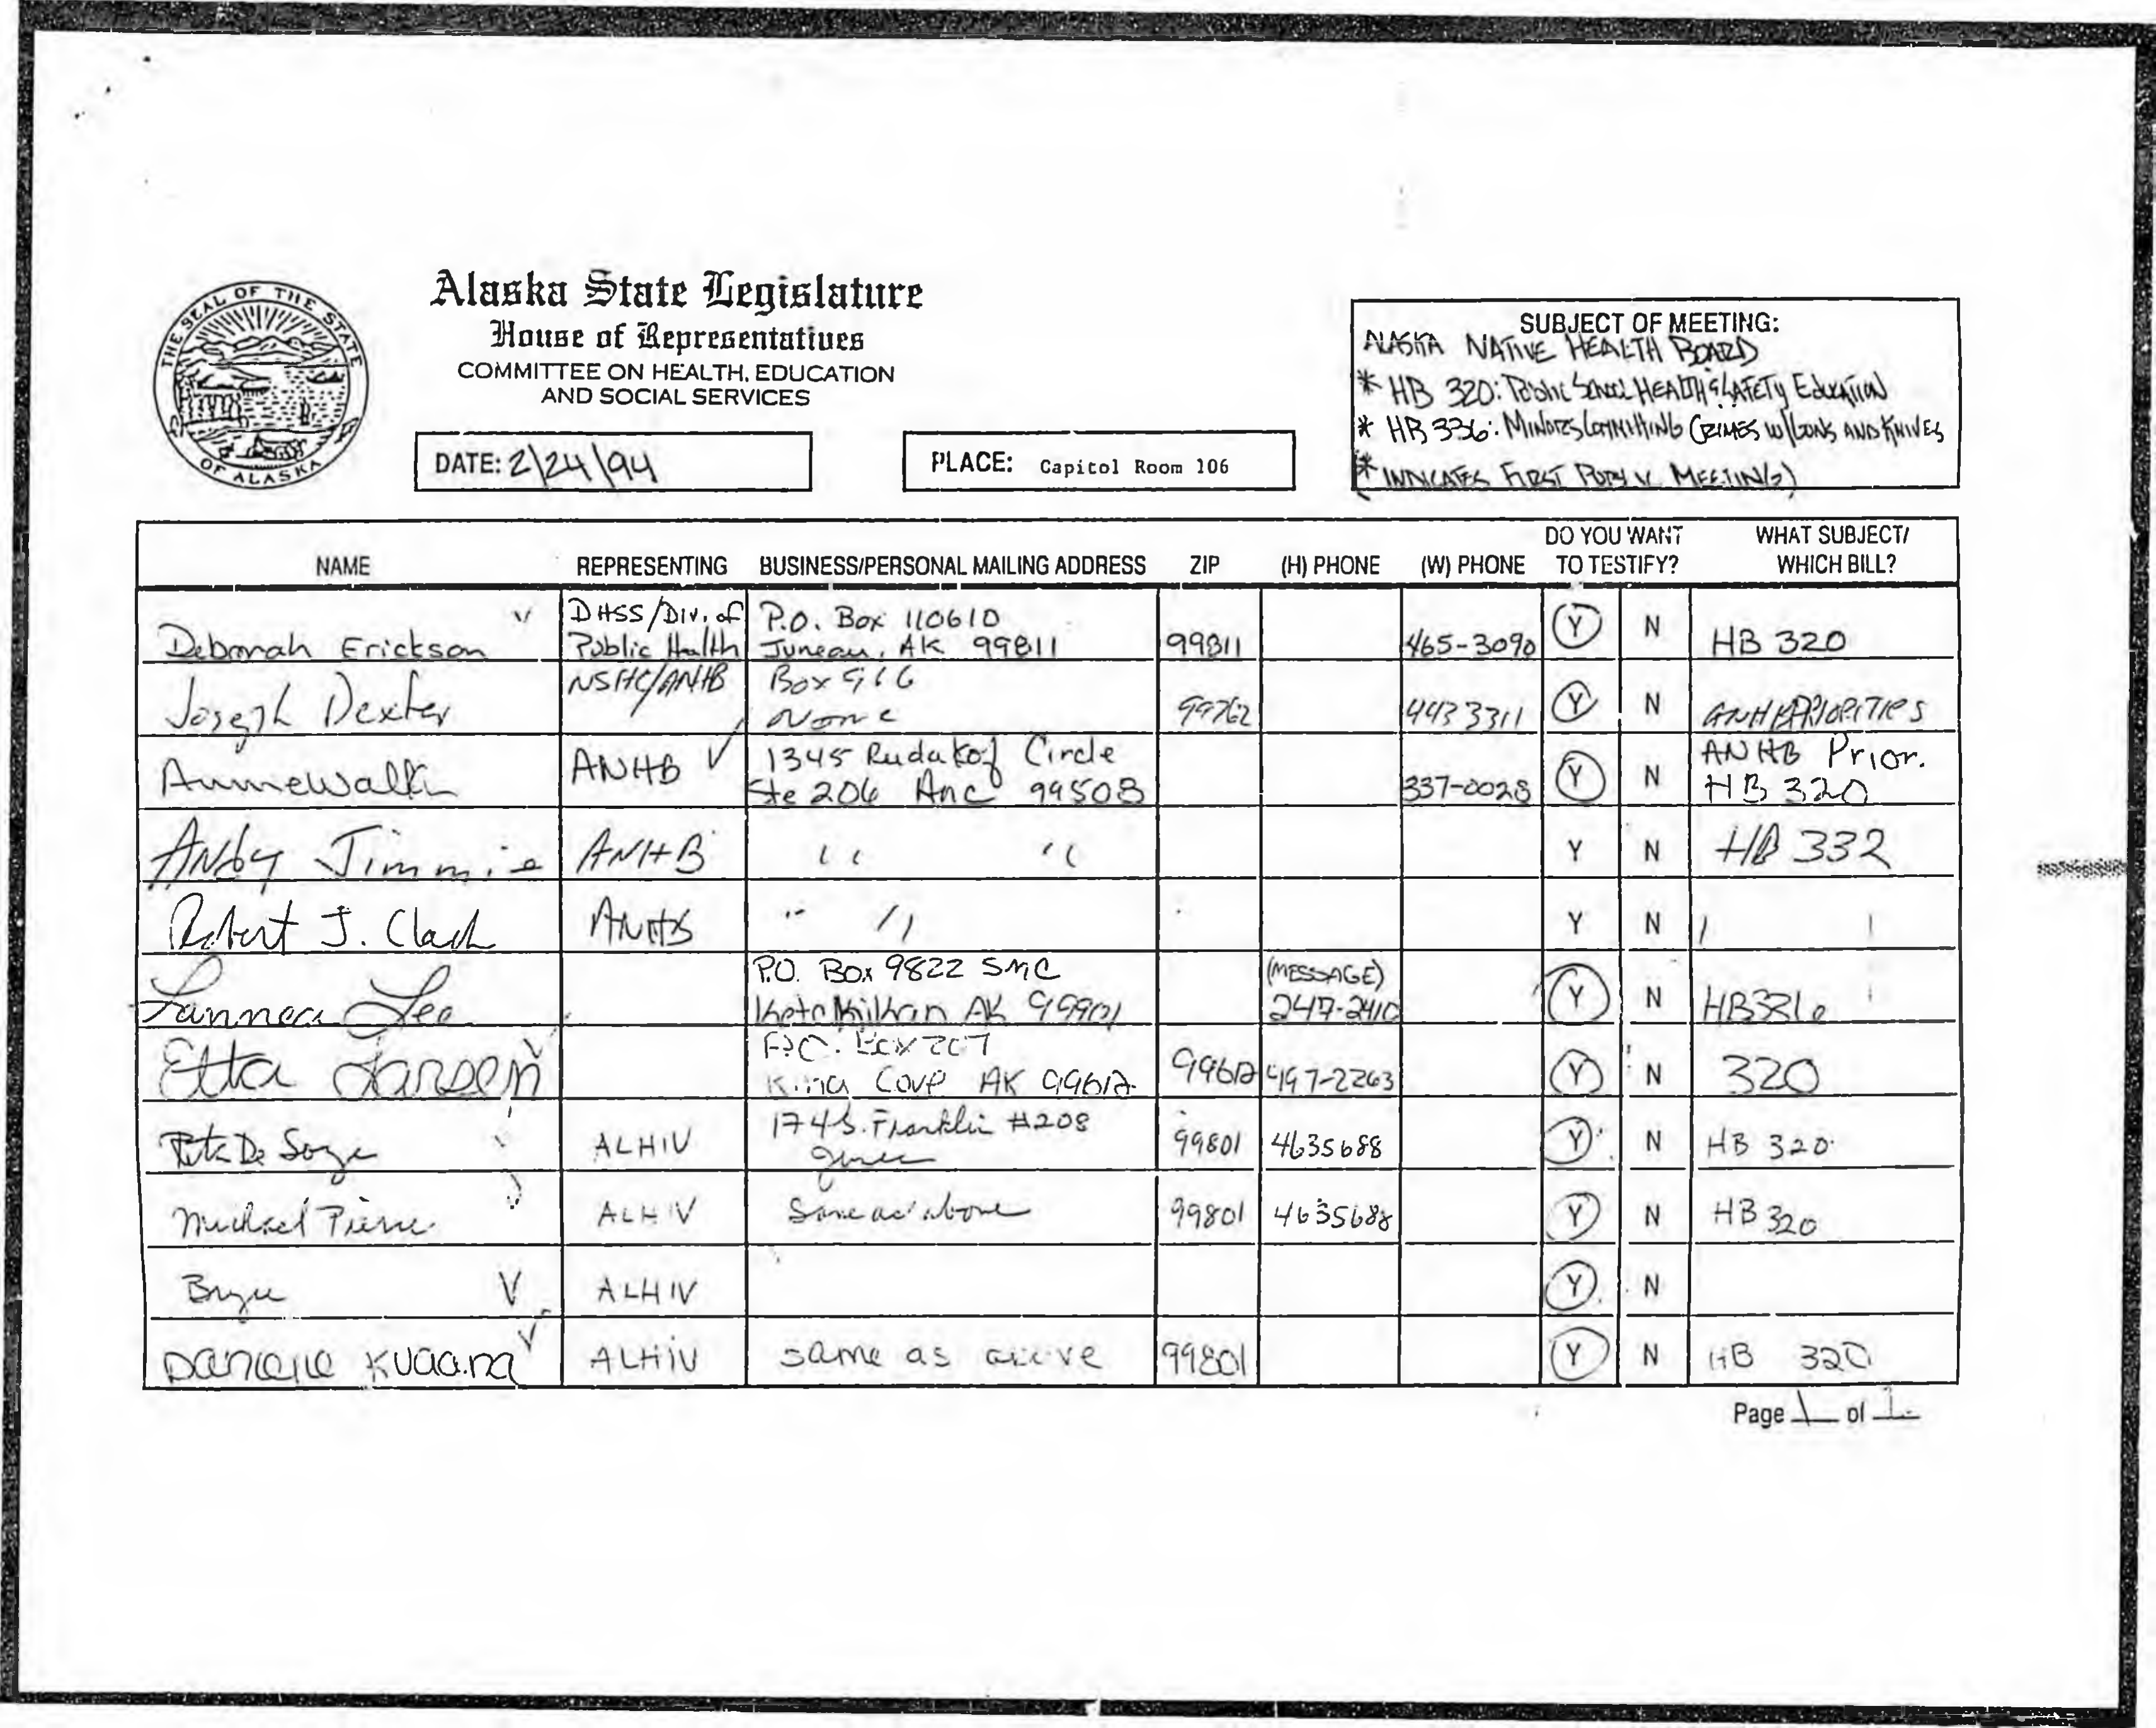 THE SEAL OF THE STATE OF ALASKA
Alaska State Legislature
House of Representatives
COMMITTEE ON HEALTH, EDUCATION
AND SOCIAL SERVICES
DATE: 2/24/94
PLACE: Capitol Room 106
SUBJECT OF MEETING:
ALASKA NATIVE HEALTH BOARD
* HB 320: Public School HEALTH & SAFETY EDUCATION
* HB 336: MINORS COMMITTING CRIMES W/GUNS AND KNIVES
(* INDICATES FIRST MEETING)
NAME REPRESENTING BUSINESS/PERSONAL MAILING ADDRESS ZIP (H) PHONE (W) PHONE DO YOU WANT TO TESTIFY? WHAT SUBJECT/ WHICH BILL?
Deborah Erickson DHSS/Div. of Public Health P.O. Box 110610 Juneau, AK 99811 99811 465-3090 Y N HB 320
Joseph Dexter NSHC/ANHB Box 966 Nome 99762 443 3311 Y N ANHB PRIORITIES
Anne Walker ANHB 1345 Rudakof Circle Ste 206 Anc 99508 337-0028 Y N ANHB Prior. HB 320
Andy Jimmie ANHB " " Y N HB 332
Robert J. Clark ANHB " " Y N
Lannea Lee P.O. Box 9822 SMC Ketchikan AK 99901 (MESSAGE) 247-2410 Y N HB336
Etta Larsen P.O. Box 207 King Cove AK 99612 99612 497-2263 Y N 320
De Soza ALHIV 174 S. Franklin #208 99801 4635688 Y N HB 320
Michael Pierre ALHIV Same as above 99801 4635688 Y N HB 320
ALHIV Y N
Danielle ALHIV same as above 99801 Y N HB 320
Page 1 of 1